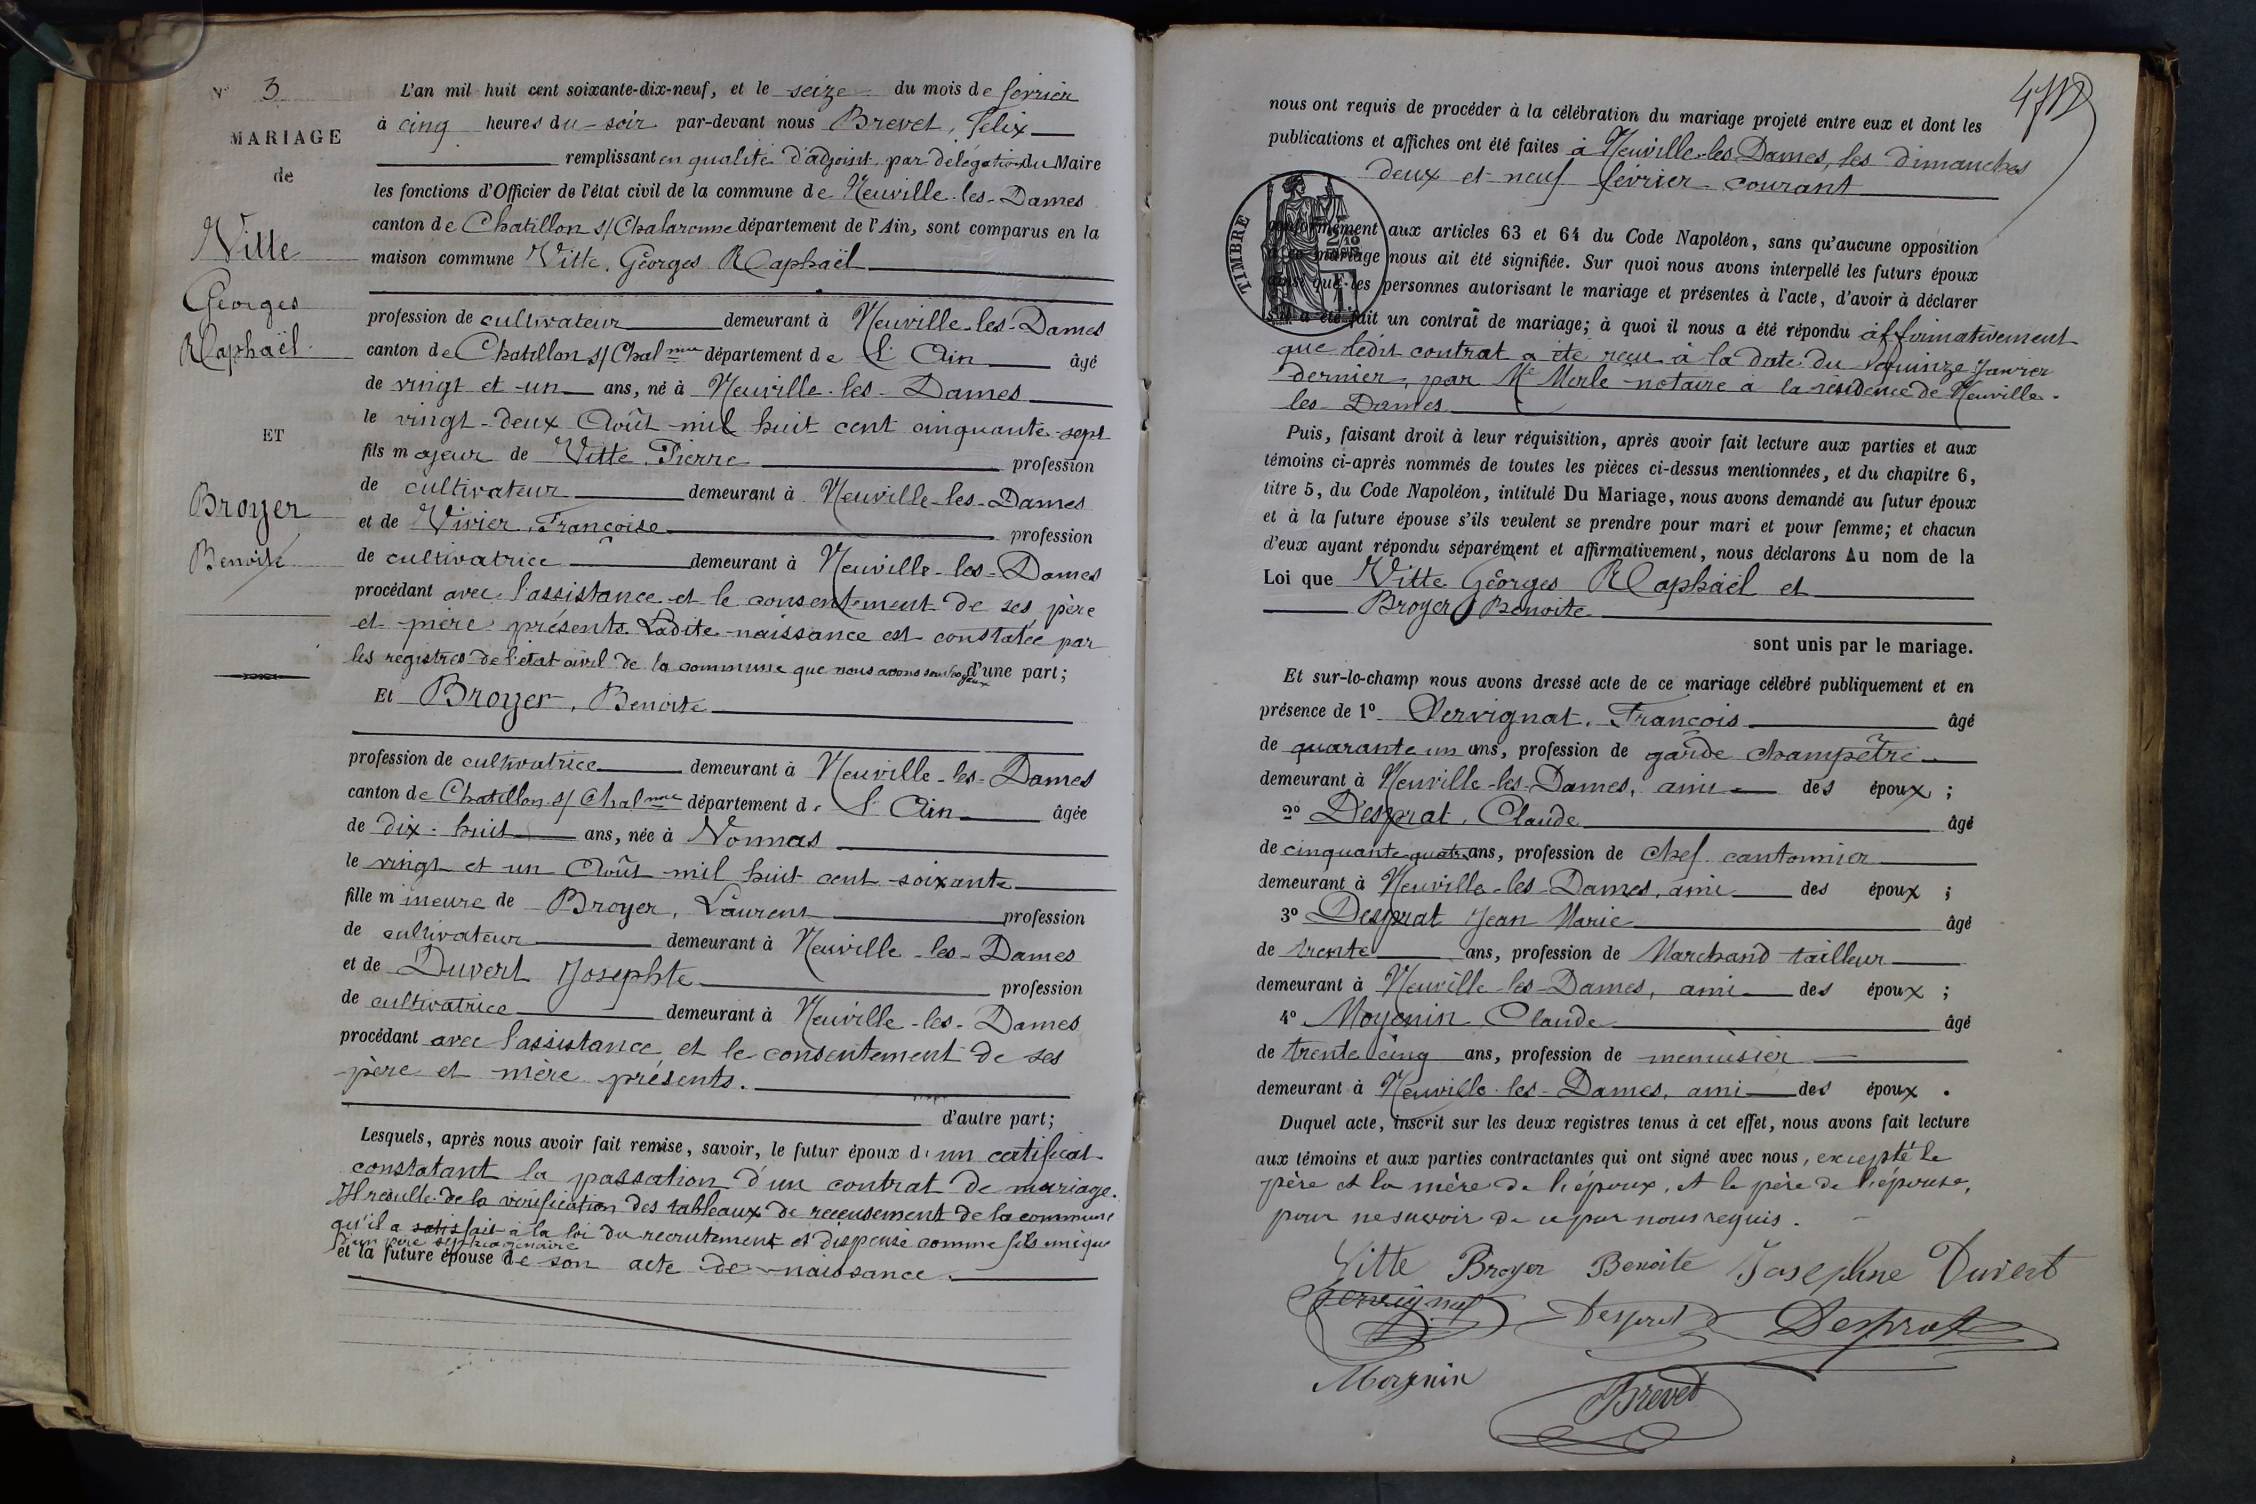 N° 3
MARIAGE
de
Vitte
Georges
Raphaël
ET
Broyer
Benoite
L'an mil huit cent soixante-dix-neuf, et le seize du mois de février
à cinq heures du soir par-devant nous Brevet, Félix
remplissant en qualité d'adjoint par délégation du Maire
les fonctions d'Officier de l'état civil de la commune de Neuville-les-Dames
canton de Chatillon s/ Chalaronne département de l'Ain, sont comparus en la
maison commune Vitte, Georges Raphaël
profession de cultivateur demeurant à Neuville-les-Dames
canton de Chatillon s/ Chalnne département de l'Ain âgé
de vingt et un ans, né à Neuville-les-Dames
le vingt-deux Août mil huit cent cinquante-sept
fils majeur de Vitte Pierre profession
de cultivateur demeurant à Neuville-les-Dames
et de Vivier, Françoise profession
de cultivatrice demeurant à Neuville-les-Dames
procédant avec l'assistance et le consentement de ses père
et mère présents. Ladite naissance est constatée par
les registres de l'état civil de la commune que nous avons sous les yeux d'une part;
Et Broyer, Benoite
profession de cultivatrice demeurant à Neuville-les-Dames
canton de Chatillon s/ Chalnne département de l'Ain âgée
de dix-huit ans, née à Vonnas
le vingt et un Août mil huit cent soixante
fille mineure de Broyer, Laurent profession
de cultivateur demeurant à Neuville-les-Dames
et de Duvert Josephte profession
de cultivatrice demeurant à Neuville-les-Dames
procédant avec l'assistance et le consentement de ses
père et mère présents.
d'autre part;
Lesquels, après nous avoir fait remise, savoir, le futur époux d'un certificat
constatant la passation d'un contrat de mariage.
Il résulte de la vérification des tableaux de recensement de la commune
qu'il a satisfait à la loi du recrutement et dispensé comme fils unique
d'un père septuagénaire
et la future épouse de son acte de naissance.
nous ont requis de procéder à la célébration du mariage projeté entre eux et dont les
publications et affiches ont été faites à Neuville-les-Dames, les dimanches
deux et neuf février courant
TIMBRE
conformément aux articles 63 et 64 du Code Napoléon, sans qu'aucune opposition
à ce mariage nous ait été signifiée. Sur quoi nous avons interpellé les futurs époux
ainsi que les personnes autorisant le mariage et présentes à l'acte, d'avoir à déclarer
s'il a été fait un contrat de mariage; à quoi il nous a été répondu affirmativement
que ledit contrat a été reçu à la date du quinze Janvier
dernier, par Me Merle notaire à la résidence de Neuville-
les-Dames
Puis, faisant droit à leur réquisition, après avoir fait lecture aux parties et aux
témoins ci-après nommés de toutes les pièces ci-dessus mentionnées, et du chapitre 6,
titre 5, du Code Napoléon, intitulé Du Mariage, nous avons demandé au futur époux
et à la future épouse s'ils veulent se prendre pour mari et pour femme; et chacun
d'eux ayant répondu séparément et affirmativement, nous déclarons Au nom de la
Loi que Vitte Georges Raphaël et
Broyer Benoite
sont unis par le mariage.
Et sur-le-champ nous avons dressé acte de ce mariage célébré publiquement et en
présence de 1° Vervignat, François âgé
de quarante un ans, profession de garde champêtre
demeurant à Neuville-les-Dames, ami des époux;
2° Desprat, Claude âgé
de cinquante quatre ans, profession de chef cantonnier
demeurant à Neuville-les-Dames, ami des époux;
3° Desprat Jean Marie âgé
de trente ans, profession de Marchand tailleur
demeurant à Neuville-les-Dames, ami des époux;
4° Moyenin Claude âgé
de trente cinq ans, profession de menuisier
demeurant à Neuville-les-Dames, ami des époux.
Duquel acte, inscrit sur les deux registres tenus à cet effet, nous avons fait lecture
aux témoins et aux parties contractantes qui ont signé avec nous, excepté le
père et la mère de l'époux, et le père de l'épouse,
pour ne savoir de ce par nous requis.
Vitte Broyer Benoite Josephine Duvert
Vervignat Desprat Desprat
Moyenin
Brevet